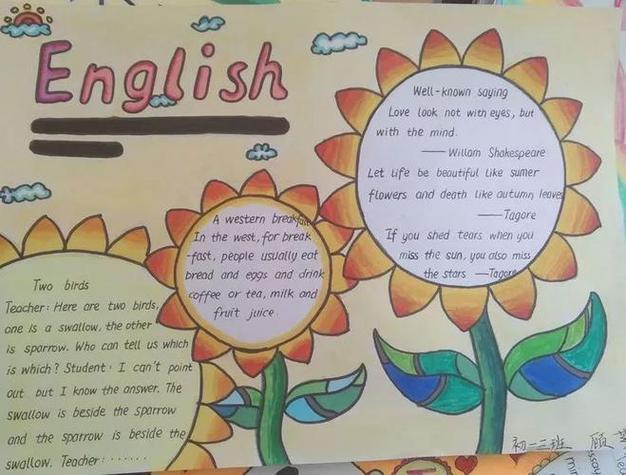 English
Well-known saying
Love look not with eyes, but
with the mind.
—— William Shakespeare
Let life be beautiful like sumer
flowers and death like autumn leaves
—— Tagore
If you shed tears when you
miss the sun, you also miss
the stars —Tagore
A western breakfast
In the west, for break
-fast, people usually eat
bread and eggs and drink
coffee or tea, milk and
fruit juice.
Two birds
Teacher: Here are two birds,
one is a swallow, the other
is sparrow. Who can tell us which
is which? Student: I can't point
out but I know the answer. The
swallow is beside the sparrow
and the sparrow is beside the
swallow. Teacher: ......
初一三班 顾